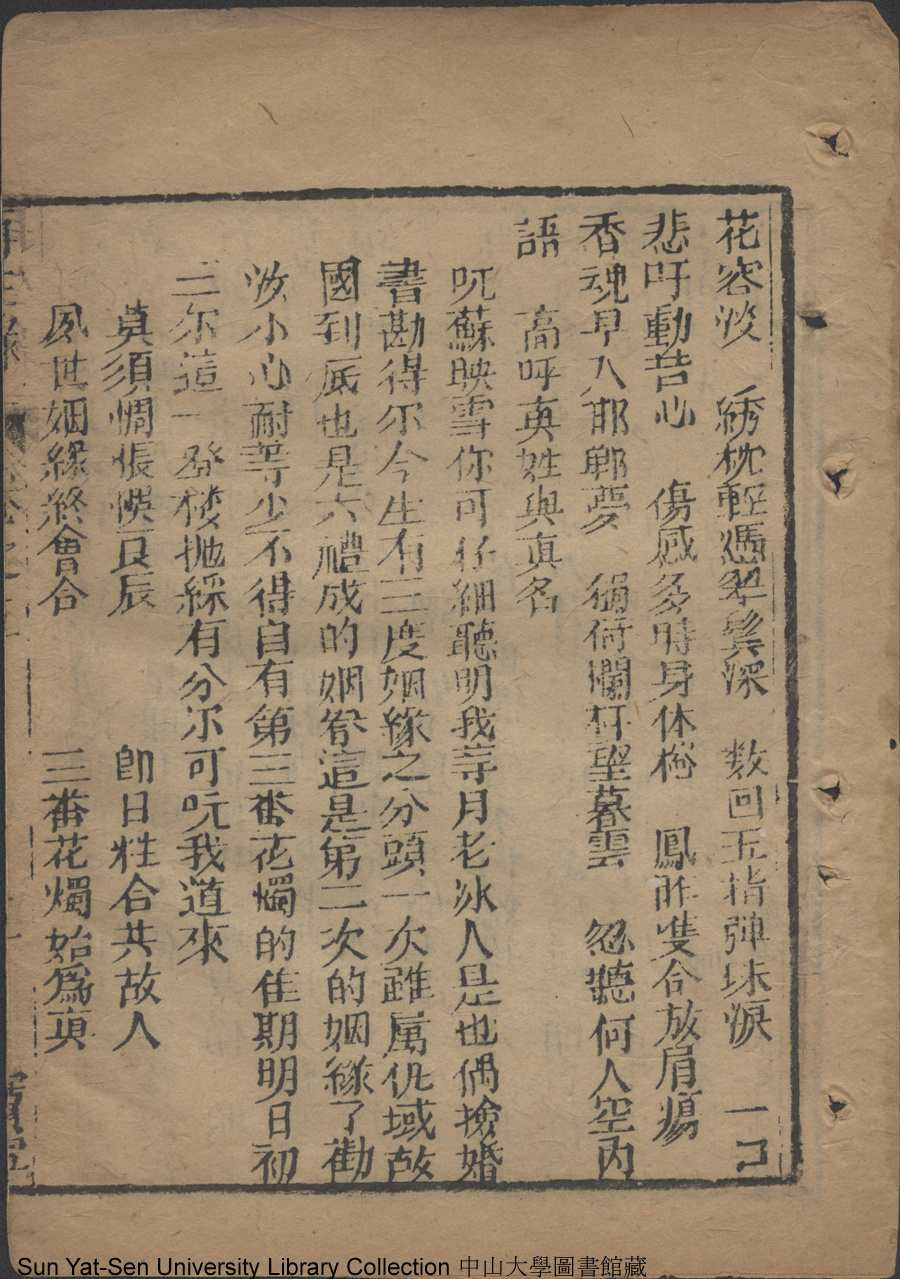 花容淡 綉枕輕憑翠鬂深 数回玉指弹珠淚 一口
悲吁動昔心 傷感多時身休倦 鳳眸隻合放肩㾗
香魂早入邯鄲夢 猶倚闌杆望暮雲 忽聽何人空內
語 高呼真姓與真名
吮蘇映雪你可仔細聽明我等月老冰人是也偶撿婚
書勘得尔今生有三度姻緣之分頭一次雖属仇域故
國到底也是六禮成的姻眷這是第二次的姻緣了勸
汝小心耐等少不得自有第三番花燭的佳期明日初
三尔這一登楼拋綵有分尔可吮我道來
莫須惆悵悞良辰 即日牲合共故人
夙世姻緣終會合 三番花燭始爲真
再生緣
Sun Yat-Sen University Library Collection 中山大學圖書館藏